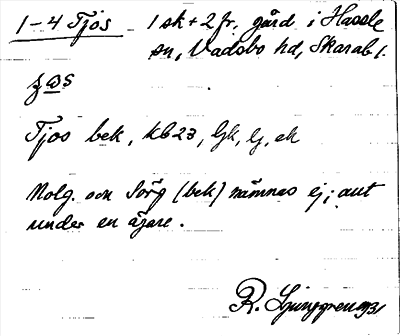 1-4 Tjos 1 sk + 2 fr. gård i Hassle
sn, Vadsbo hd, Skarab l.
Tjos bek, kb 23, Gk, lg, ak
Nolg. och Sörg (bek) nämnas ej; ant
under en ägare.
R. Ljunggren 1931